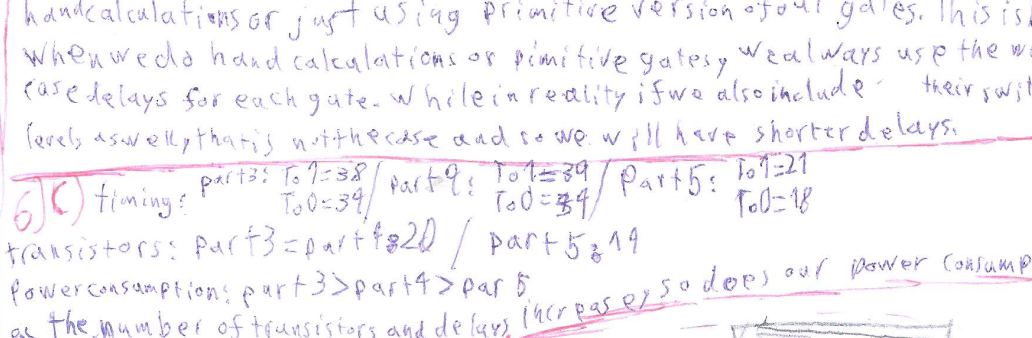 handcalculations or just using primitive version of our gates. This is
When we do hand calculations or pimitive gates, We always use the
case delays for each gate. While in reality if we also include their swit
levels as well, that is not the case and so we will have shorter delays.
6) C) timing: part3: To1=38 To0=34 / Part4: To1=39 To0=34 / Part5: To1=21 To0=18
transistors: part3=part4:20 / part5:14
Power consumption: part3>part4>par 5
as the number of transistors and delays increases, so does our power consump